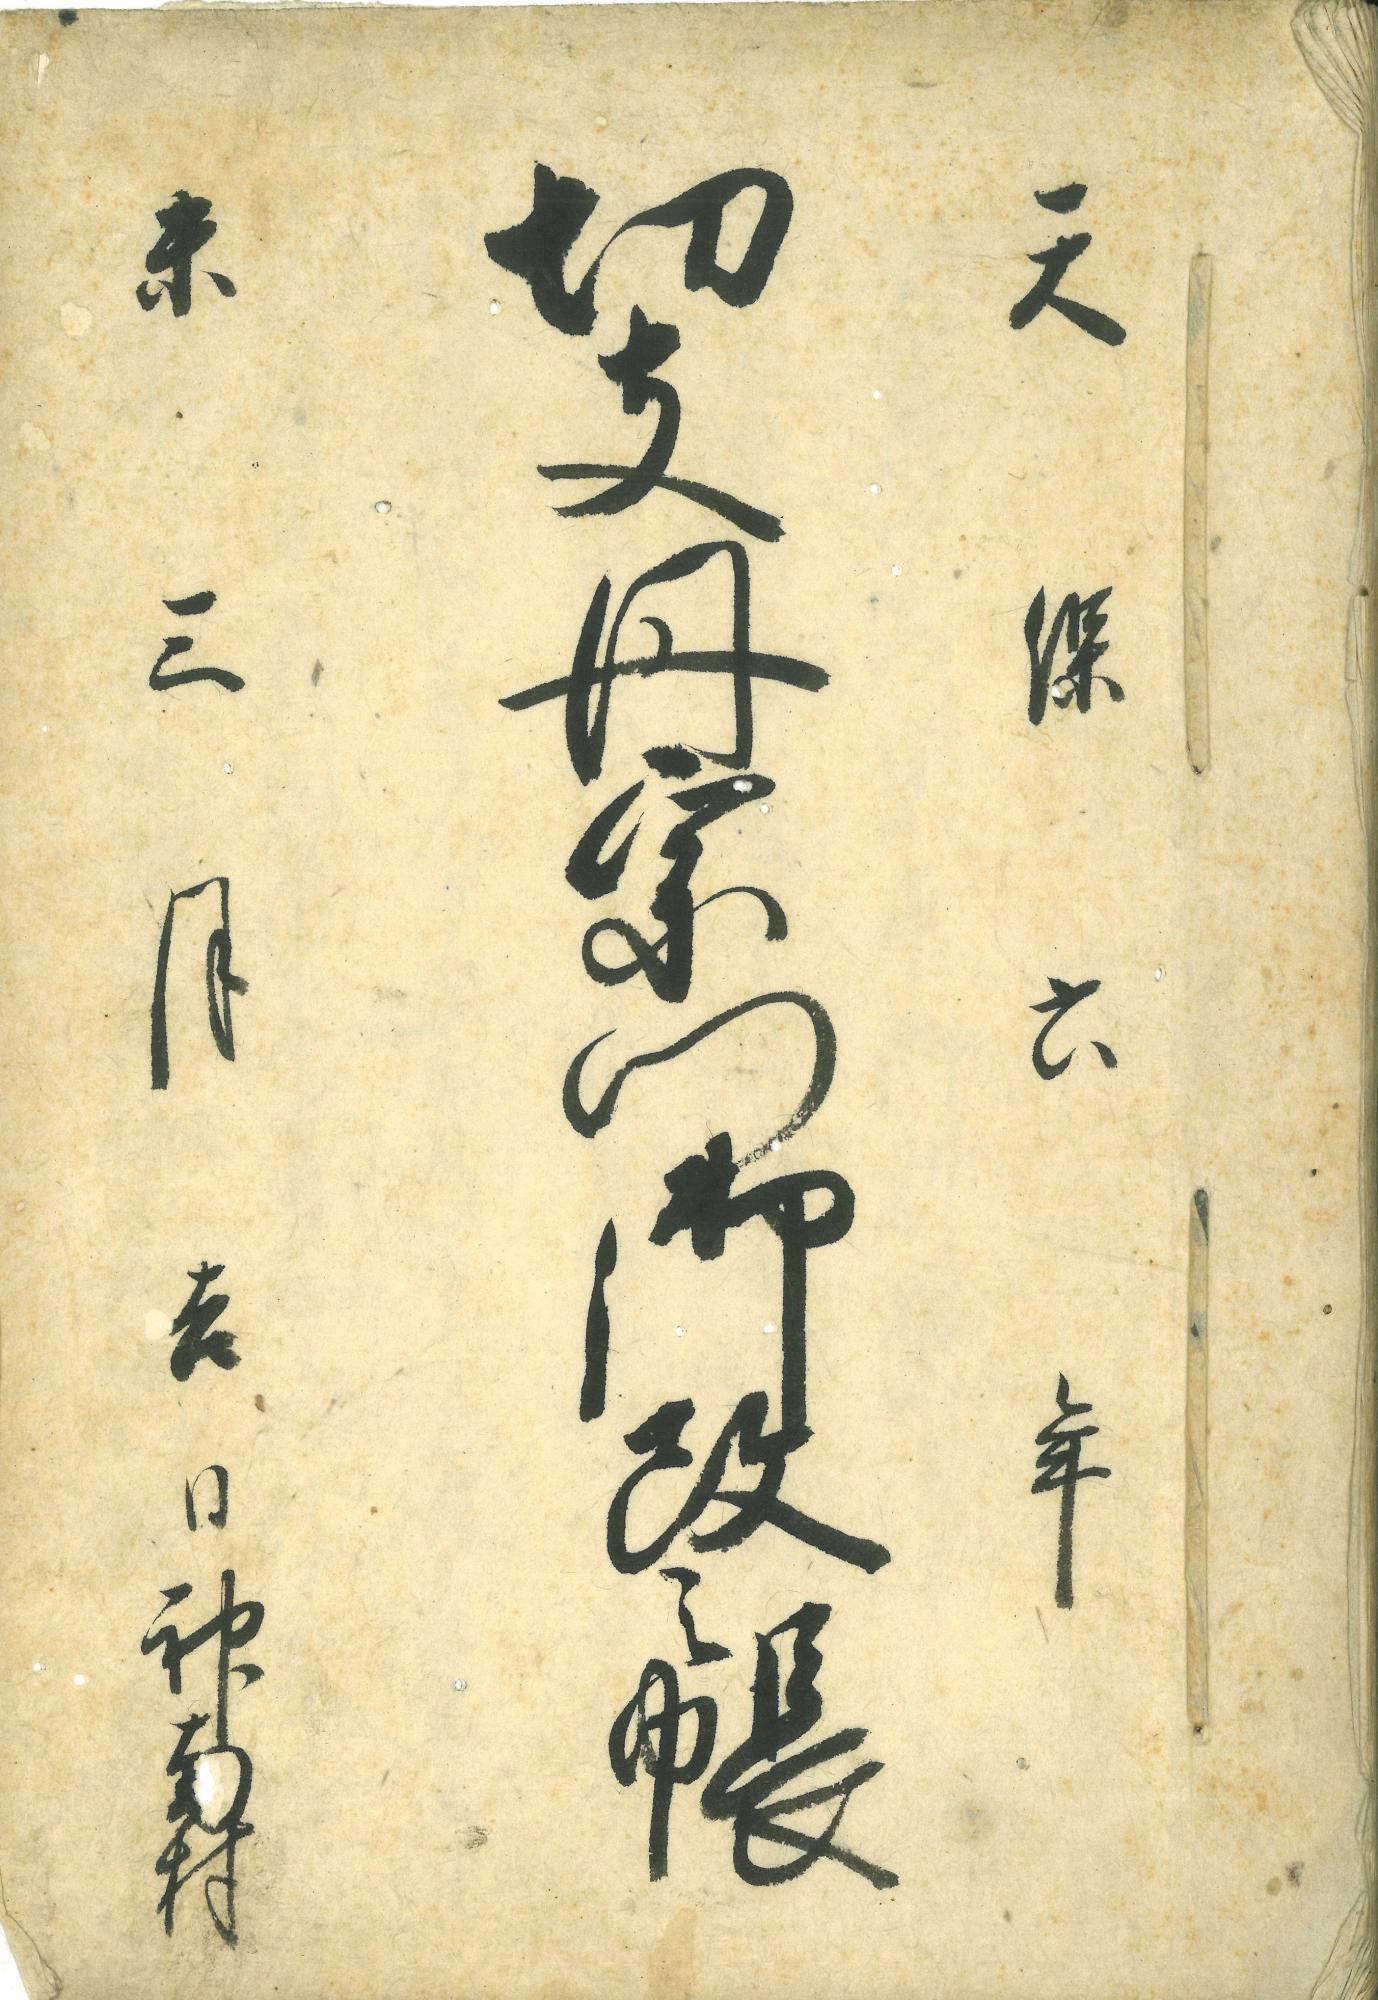 天保六年
切支丹宗門御改之帳
未三月吉日神南村